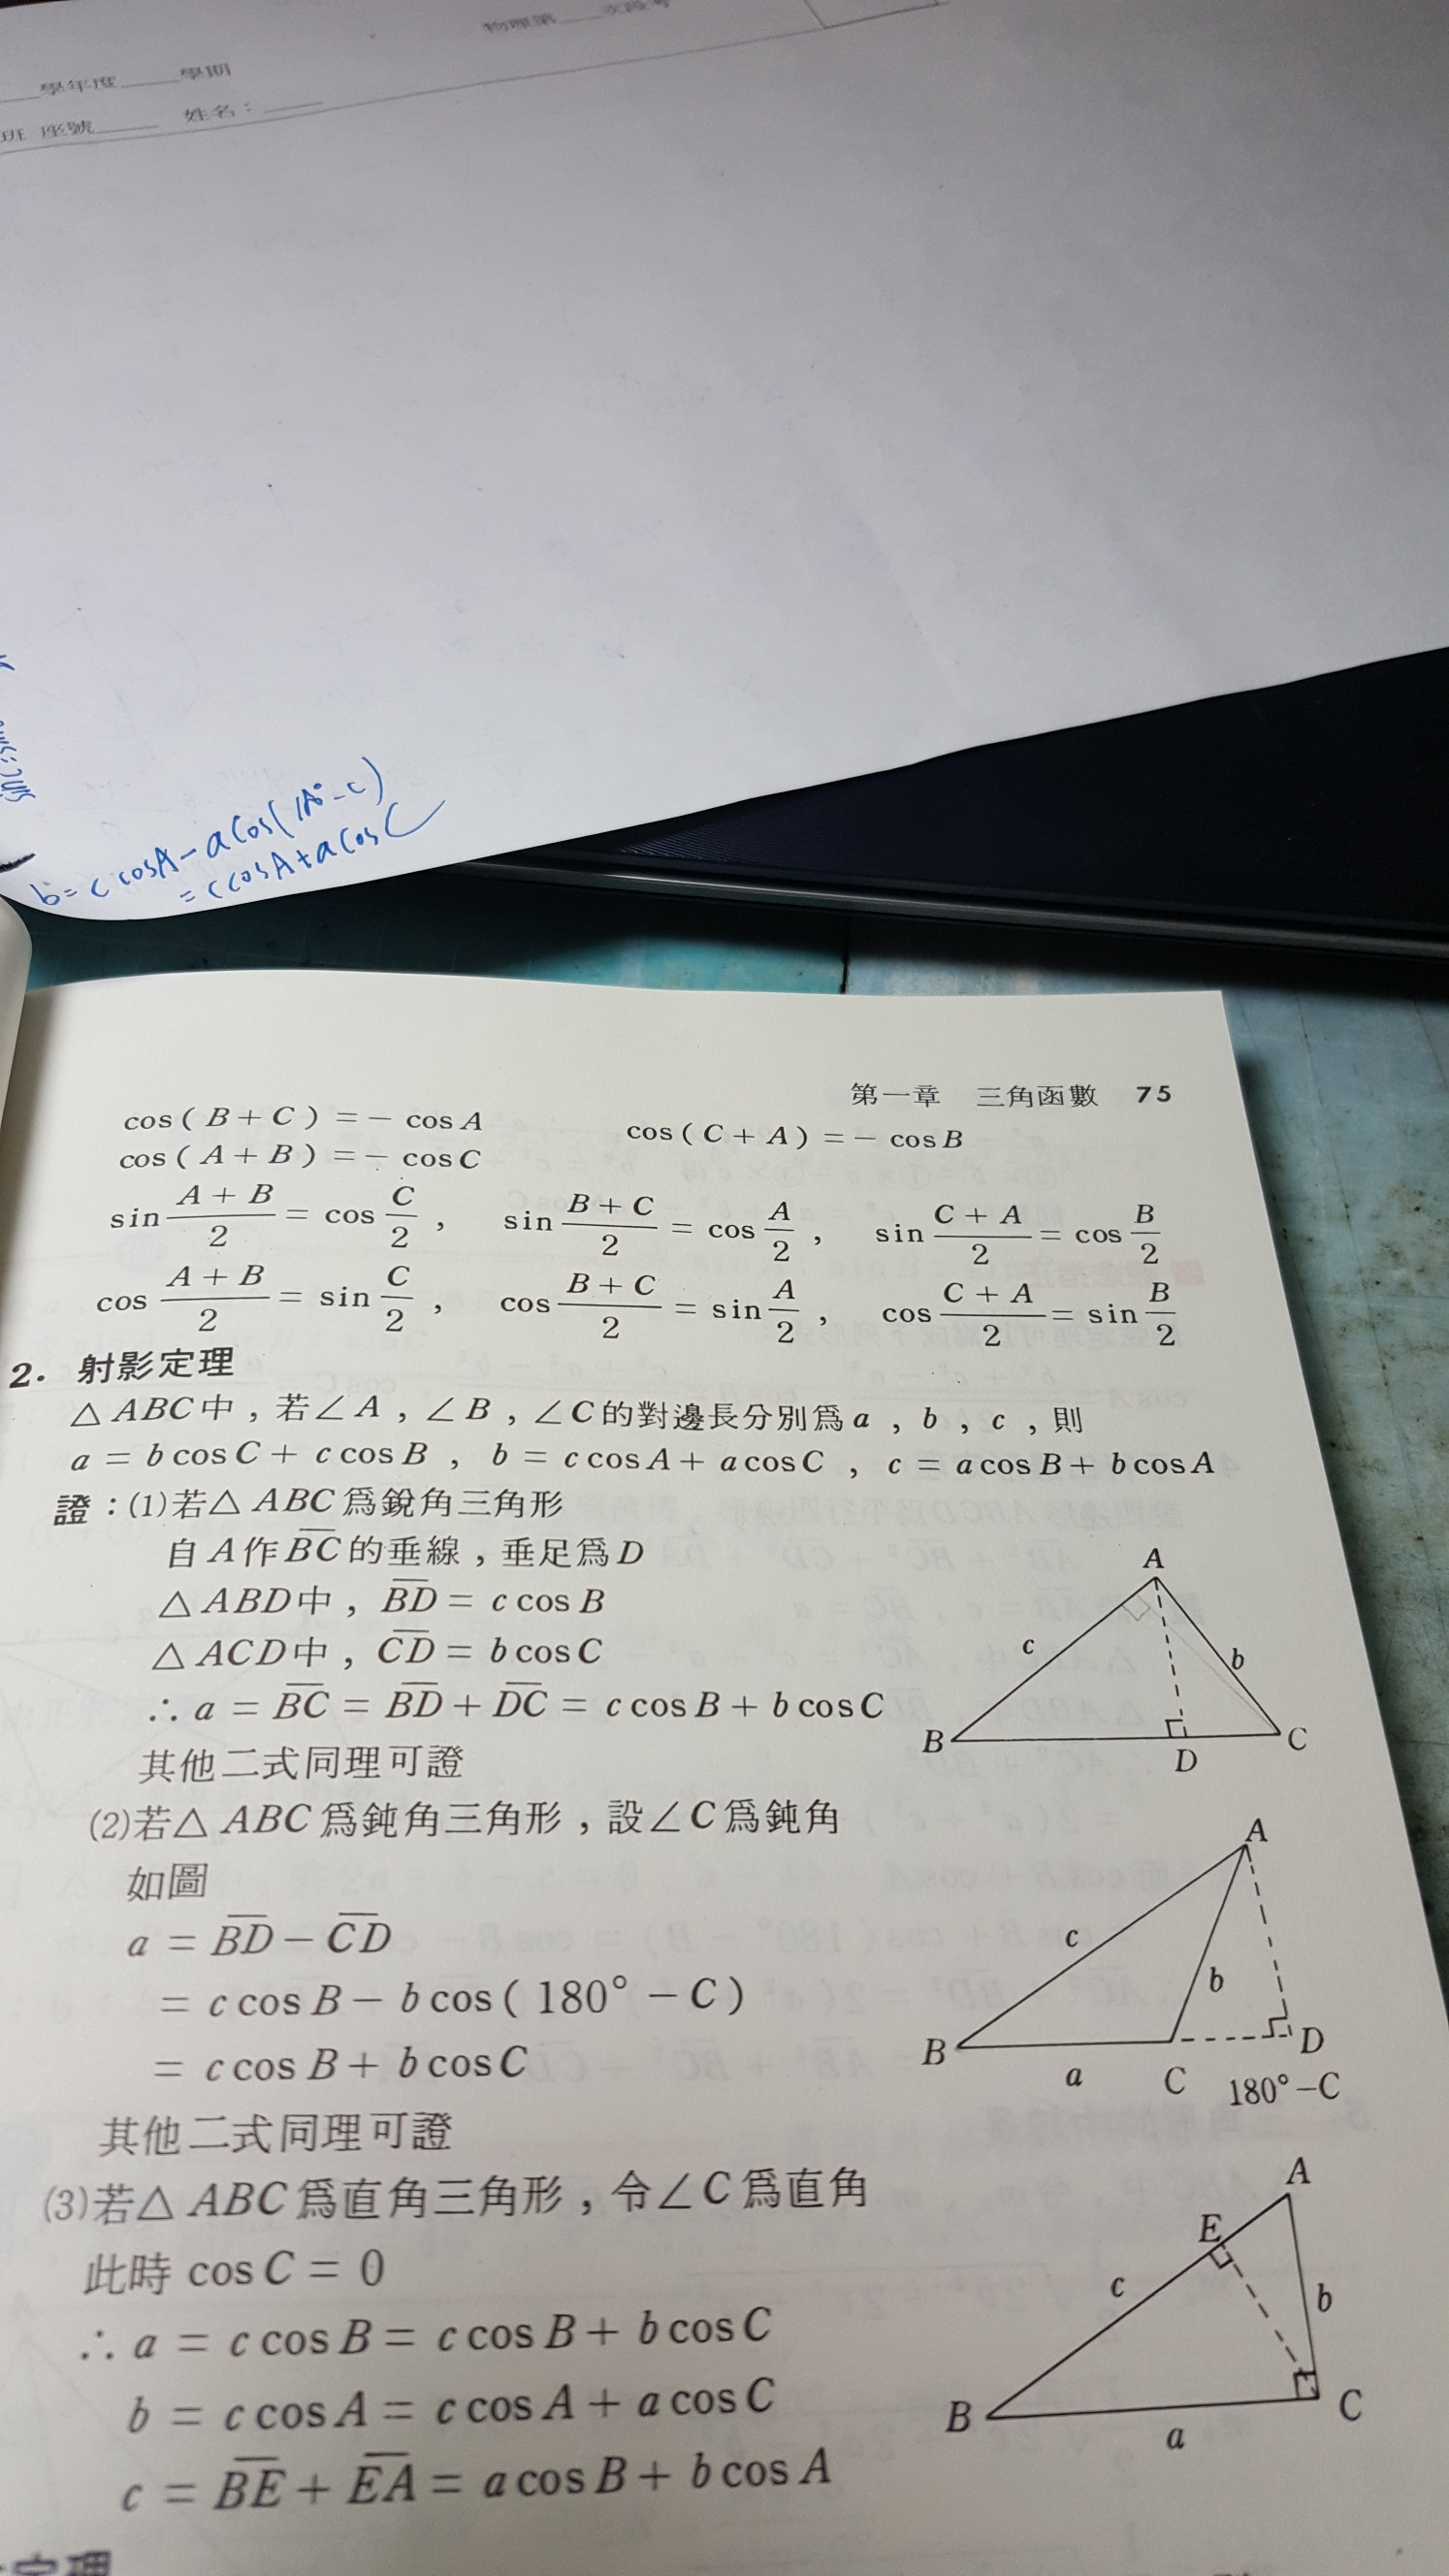 物理第___次段考
___學年度___學期
班 座號___ 姓名：___
b = c cosA - a cos(180° - C)
= c cosA + a cos C
第一章 三角函數 75
cos ( B + C ) = − cos A cos ( C + A ) = − cos B
cos ( A + B ) = − cos C
sin (A + B)/2 = cos C/2 , sin (B + C)/2 = cos A/2 , sin (C + A)/2 = cos B/2
cos (A + B)/2 = sin C/2 , cos (B + C)/2 = sin A/2 , cos (C + A)/2 = sin B/2
2. 射影定理
△ ABC 中，若∠A，∠B，∠C的對邊長分別爲a，b，c，則
a = b cos C + c cos B ， b = c cos A + a cos C ， c = a cos B + b cos A
證：(1)若△ ABC 爲銳角三角形
自 A 作 B̅C̅ 的垂線，垂足爲 D
△ ABD 中， B̅D̅ = c cos B
△ ACD 中， C̅D̅ = b cos C
∴ a = B̅C̅ = B̅D̅ + D̅C̅ = c cos B + b cos C
其他二式同理可證
A
c
b
B
D
C
(2)若△ ABC 爲鈍角三角形，設∠C 爲鈍角
如圖
a = B̅D̅ − C̅D̅
= c cos B − b cos ( 180° − C )
= c cos B + b cos C
其他二式同理可證
A
c
b
B
a
C
D
180° − C
(3)若△ ABC 爲直角三角形，令∠C 爲直角
此時 cos C = 0
∴ a = c cos B = c cos B + b cos C
b = c cos A = c cos A + a cos C
c = B̅E̅ + E̅A̅ = a cos B + b cos A
A
E
c
b
B
a
C
定理